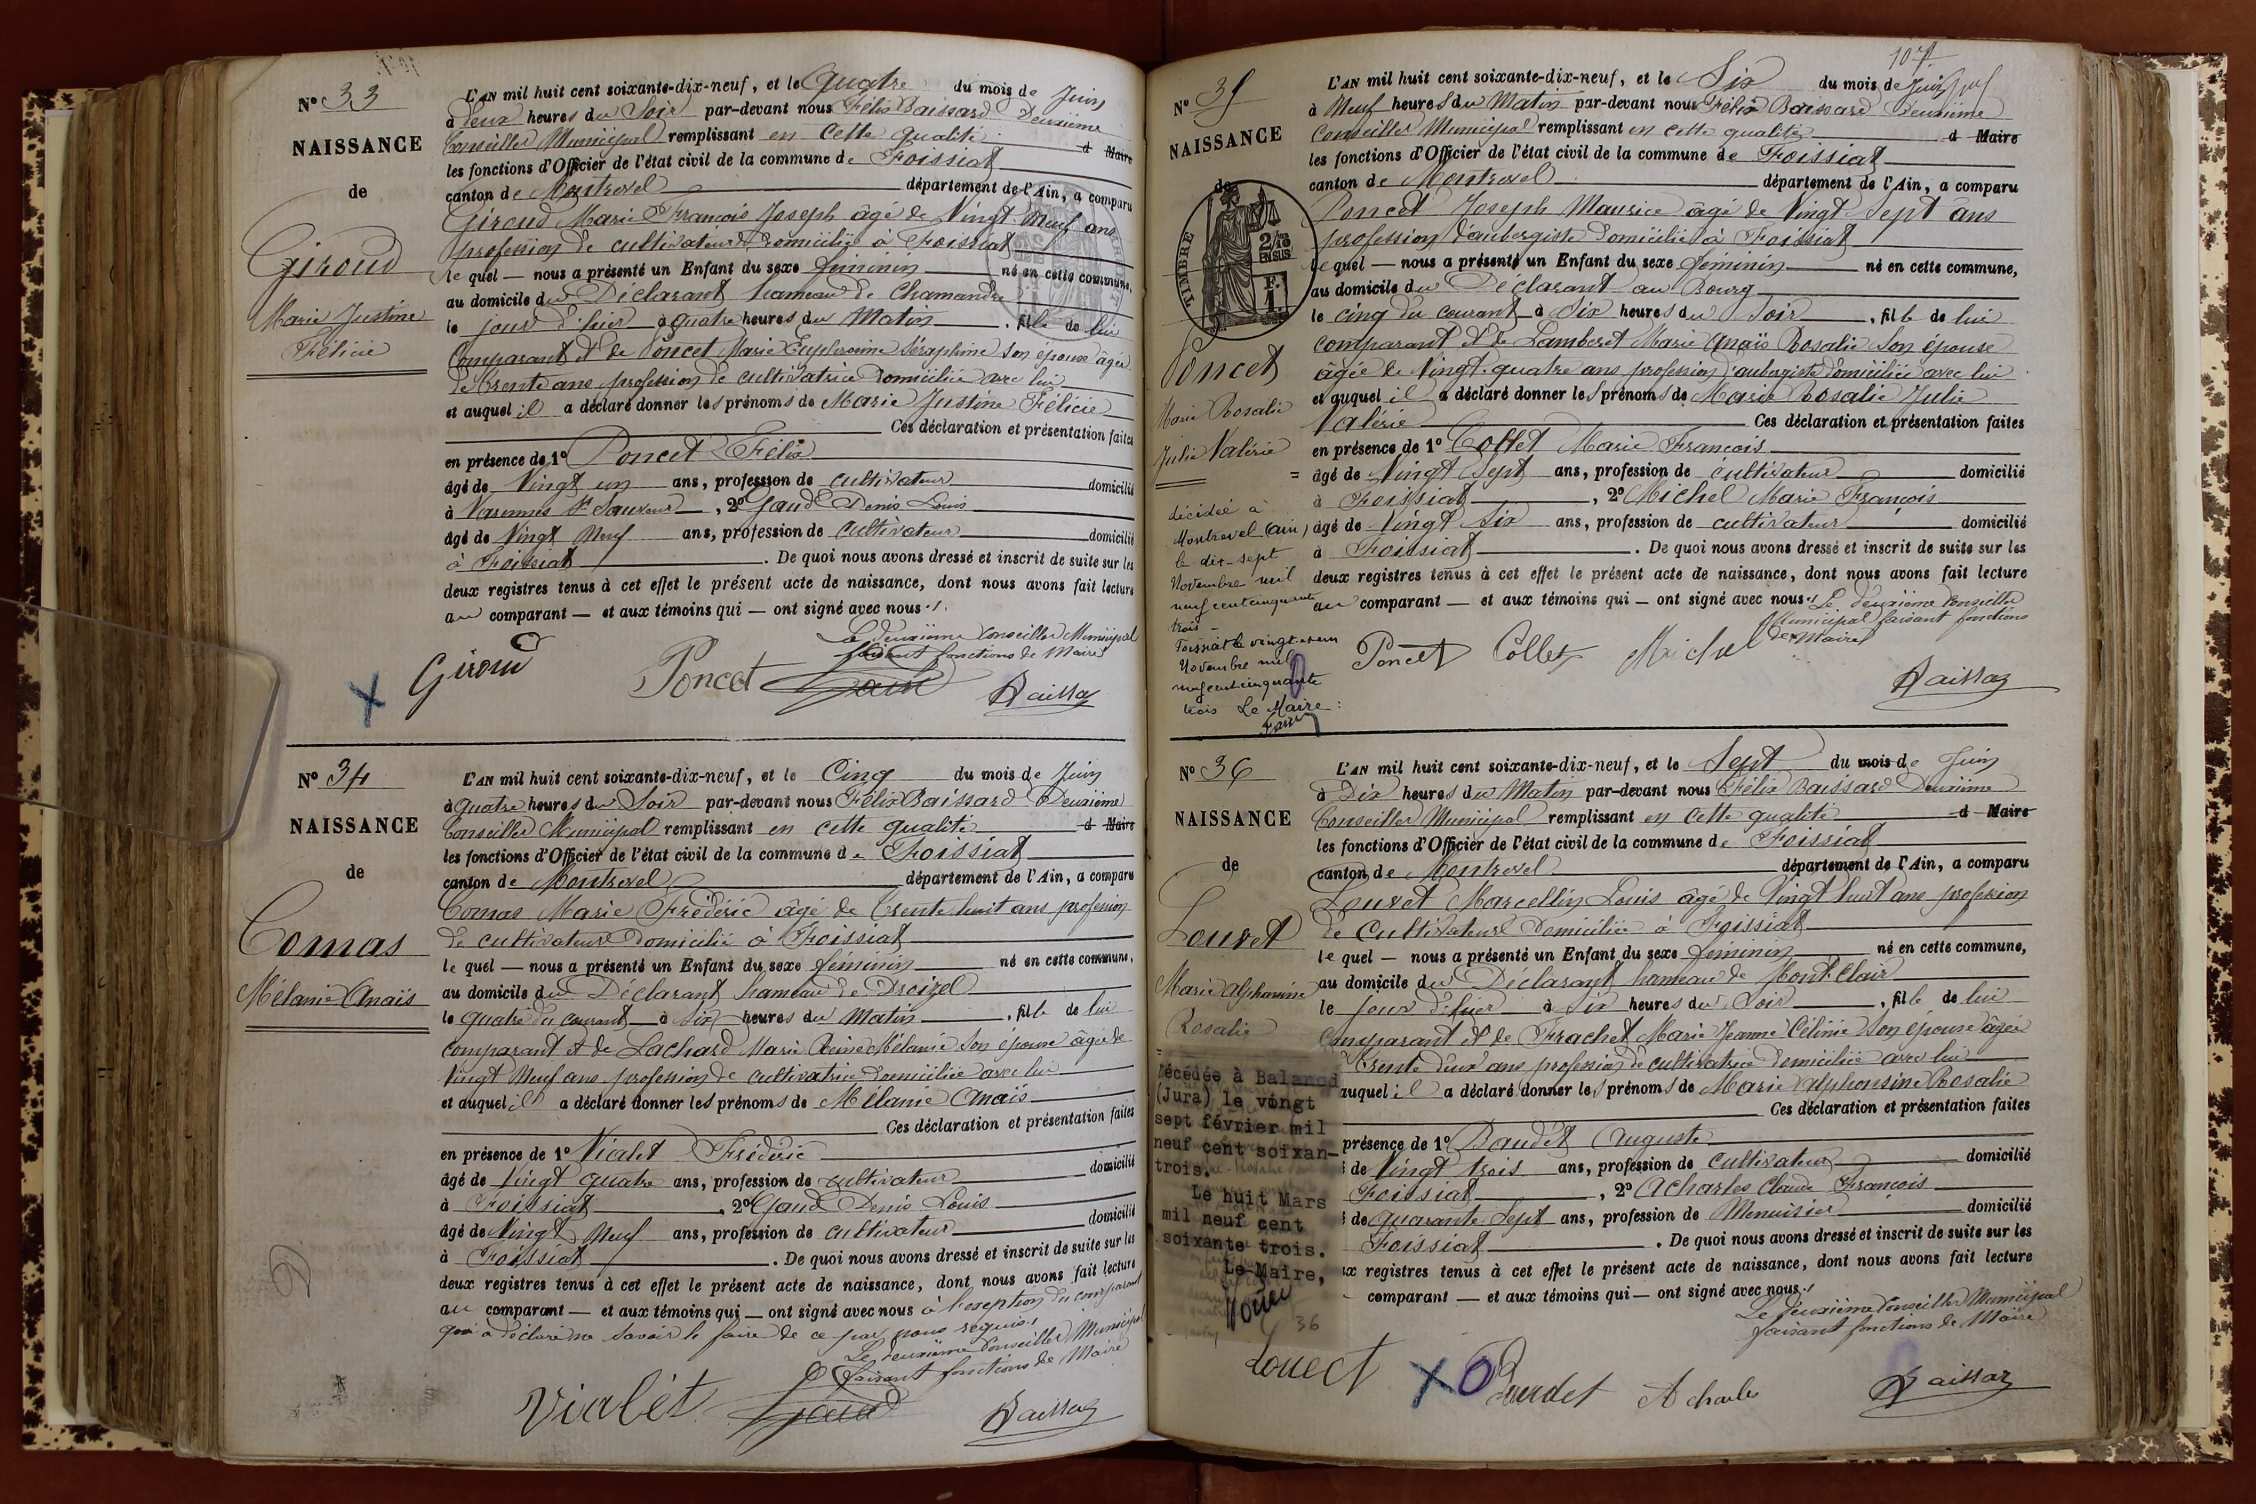 N° 33
NAISSANCE
de
Giroud
Marie Justine
Félicie
L'AN mil huit cent soixante-dix-neuf, et le Quatre du mois de Juin
à deux heures du Soir par-devant nous Félix Baissard Deuxième
Conseiller Municipal remplissant en cette qualité d Maire
les fonctions d'Officier de l'état civil de la commune de Foissiat
canton de Montrevel département de l'Ain, a comparu
Giroud Marie François Joseph âgé de Vingt Neuf ans
profession de cultivateur domicilié à Foissiat
le quel — nous a présenté un Enfant du sexe féminin né en cette commune,
au domicile du Déclarant hameau de Chamandre
le jour d'hier à quatre heures du Matin, fille de lui
Comparant et de Poncet Marie Euphrosine Séraphine son épouse âgée
de trente ans profession de cultivatrice domiciliée avec lui
et auquel il a déclaré donner les prénoms de Marie Justine Félicie
Ces déclaration et présentation faites
en présence de 1° Poncet Félix
âgé de Vingt un ans, profession de cultivateur domicilié
à Varennes St Sauveur, 2° Gaud Denis Louis
âgé de Vingt Neuf ans, profession de cultivateur domicilié
à Foissiat. De quoi nous avons dressé et inscrit de suite sur les
deux registres tenus à cet effet le présent acte de naissance, dont nous avons fait lecture
au comparant — et aux témoins qui — ont signé avec nous
Le deuxième Conseiller Municipal
faisant fonctions de Maire
Giroud Poncet Gaud Baissard
N° 34
NAISSANCE
de
Comas
Mélanie Anaïs
L'AN mil huit cent soixante-dix-neuf, et le Cinq du mois de Juin
à quatre heures du Soir par-devant nous Félix Baissard Deuxième
Conseiller Municipal remplissant en cette qualité d Maire
les fonctions d'Officier de l'état civil de la commune de Foissiat
canton de Montrevel département de l'Ain, a comparu
Comas Marie Frédéric âgé de trente huit ans profession
de cultivateur domicilié à Foissiat
le quel — nous a présenté un Enfant du sexe féminin né en cette commune,
au domicile du Déclarant hameau de Droizel
le quatre du courant à six heures du Matin, fille de lui
comparant et de Lachard Marie Reine Mélanie son épouse âgée de
Vingt Neuf ans profession de cultivatrice domiciliée avec lui
et auquel il a déclaré donner les prénoms de Mélanie Anaïs
Ces déclaration et présentation faites
en présence de 1° Vialet Frédéric
âgé de Vingt quatre ans, profession de cultivateur domicilié
à Foissiat, 2° Gaud Denis Louis
âgé de Vingt Neuf ans, profession de cultivateur domicilié
à Foissiat. De quoi nous avons dressé et inscrit de suite sur les
deux registres tenus à cet effet le présent acte de naissance, dont nous avons fait lecture
au comparant — et aux témoins qui — ont signé avec nous à l'exeption du comparant
qui a déclaré ne savoir le faire de ce par nous requis
Le deuxième Conseiller Municipal
faisant fonctions de Maire
Vialet Gaud Baissard
107
N° 35
NAISSANCE
de
TIMBRE
2/10 EN SUS
F. 1
Poncet
Marie Rosalie
Julie Valérie
décédée à
Montrevel (Ain)
le dix-sept
Novembre mil
neuf cent cinquante
trois -
Foissiat le vingt et un
Novembre mil
neuf cent cinquante
trois Le Maire :
L'AN mil huit cent soixante-dix-neuf, et le Six du mois de Juin
à Neuf heures du Matin par-devant nous Félix Baissard Deuxième
Conseiller Municipal remplissant en cette qualité d Maire
les fonctions d'Officier de l'état civil de la commune de Foissiat
canton de Montrevel département de l'Ain, a comparu
Poncet Joseph Maurice âgé de Vingt Sept ans
profession d'aubergiste domicilié à Foissiat
le quel — nous a présenté un Enfant du sexe féminin né en cette commune,
au domicile du Déclarant au Bourg
le cinq du courant à Six heures du Soir, fille de lui
comparant et de Lamberet Marie Anaïs Rosalie Son épouse
âgée de Vingt quatre ans profession d'aubergiste domiciliée avec lui
et auquel il a déclaré donner les prénoms de Marie Rosalie Julie
Valérie Ces déclaration et présentation faites
en présence de 1° Collet Marie François
âgé de Vingt Sept ans, profession de cultivateur domicilié
à Foissiat, 2° Michel Marie François
âgé de Vingt Six ans, profession de cultivateur domicilié
à Foissiat. De quoi nous avons dressé et inscrit de suite sur les
deux registres tenus à cet effet le présent acte de naissance, dont nous avons fait lecture
au comparant — et aux témoins qui — ont signé avec nous Le deuxième Conseiller
Municipal faisant fonctions
de Maire
Poncet Collet Michel Baissard
N° 36
NAISSANCE
de
Louvet
Marie Alphonsine
Rosalie
décédée à Balanod
(Jura) le vingt
sept février mil
neuf cent soixan-
trois.
Le huit Mars
mil neuf cent
soixante trois.
Le Maire,
36
L'AN mil huit cent soixante-dix-neuf, et le Sept du mois de Juin
à Dix heures du Matin par-devant nous Félix Baissard Deuxième
Conseiller Municipal remplissant en cette qualité d Maire
les fonctions d'Officier de l'état civil de la commune de Foissiat
canton de Montrevel département de l'Ain, a comparu
Louvet Marcellin Louis âgé de Vingt huit ans profession
de Cultivateur domicilié à Foissiat
le quel — nous a présenté un Enfant du sexe féminin né en cette commune,
au domicile du Déclarant hameau de Mont-Clair
le jour d'hier à Six heures du Soir, fille de lui
comparant et de Frachet Marie Jeanne Célinie son épouse âgée
Trente deux ans profession de cultivatrice domiciliée avec lui
auquel il a déclaré donner les prénoms de Marie Alphonsine Rosalie
Ces déclaration et présentation faites
présence de 1° Baudet Auguste
de Vingt trois ans, profession de cultivateur domicilié
Foissiat, 2° Acharles Claude François
de quarante Sept ans, profession de Menuisier domicilié
Foissiat. De quoi nous avons dressé et inscrit de suite sur les
ux registres tenus à cet effet le présent acte de naissance, dont nous avons fait lecture
comparant — et aux témoins qui — ont signé avec nous
Le deuxième Conseiller Municipal
faisant fonctions de Maire
Louvet Baudet Acharles Baissard